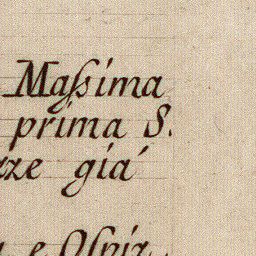 Maſsima
prima S.
rze giá
e Oſpiz